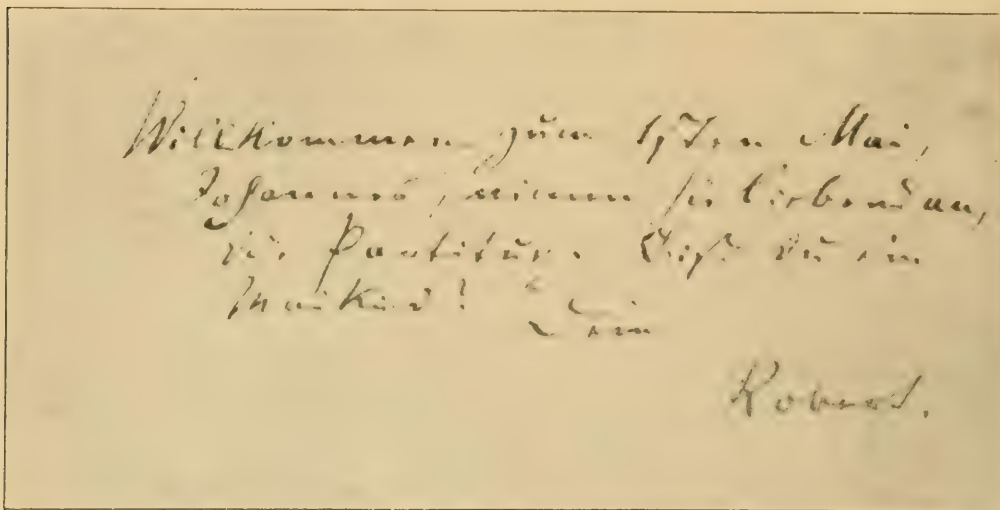 Willkommen zum 1sten Mai,
Johannes, nimm sie liebend an,
die Partitur. Bist du ein
Maikind! Dein
Robert.